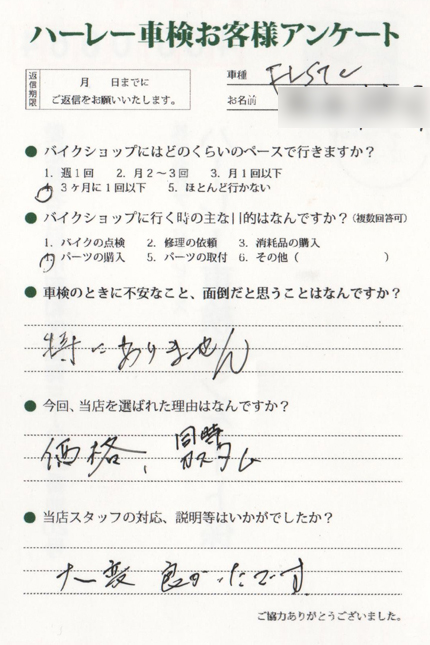 ハーレー車検お客様アンケート
返信期限
月　日までに
ご返信をお願いいたします。
車種 FLSTC
お名前
● バイクショップにはどのくらいのペースで行きますか？
1. 週1回　2. 月2〜3回　3. 月1回以下
4. 3ヶ月に1回以下　5. ほとんど行かない
● バイクショップに行く時の主な目的はなんですか？(複数回答可)
1. バイクの点検　2. 修理の依頼　3. 消耗品の購入
4. パーツの購入　5. パーツの取付　6. その他（　　　　）
● 車検のときに不安なこと、面倒だと思うことはなんですか？
特にありません
● 今回、当店を選ばれた理由はなんですか？
価格、同時
カスタム
● 当店スタッフの対応、説明等はいかがでしたか？
大変良かったです
ご協力ありがとうございました。